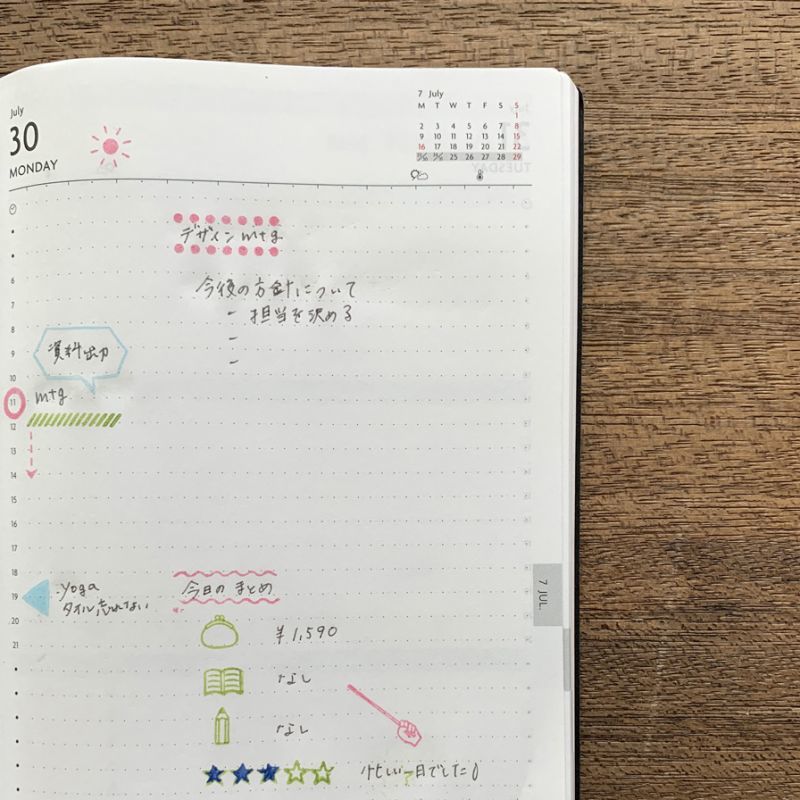 July
30
MONDAY
7 July
M T W T F S S
1
2 3 4 5 6 7 8
9 10 11 12 13 14 15
16 17 18 19 20 21 22
23/30 24/31 25 26 27 28 29
TUESDAY
デザインmtg
今後の方針について
- 担当を決める
-
-
6
7
8
資料出力
9
10
11 mtg
12
13
14
15
16
17
18
19
20
21
yoga
タイル忘れない
今日のまとめ
¥1,590
なし
なし
忙しい一日でした
7 JUL.